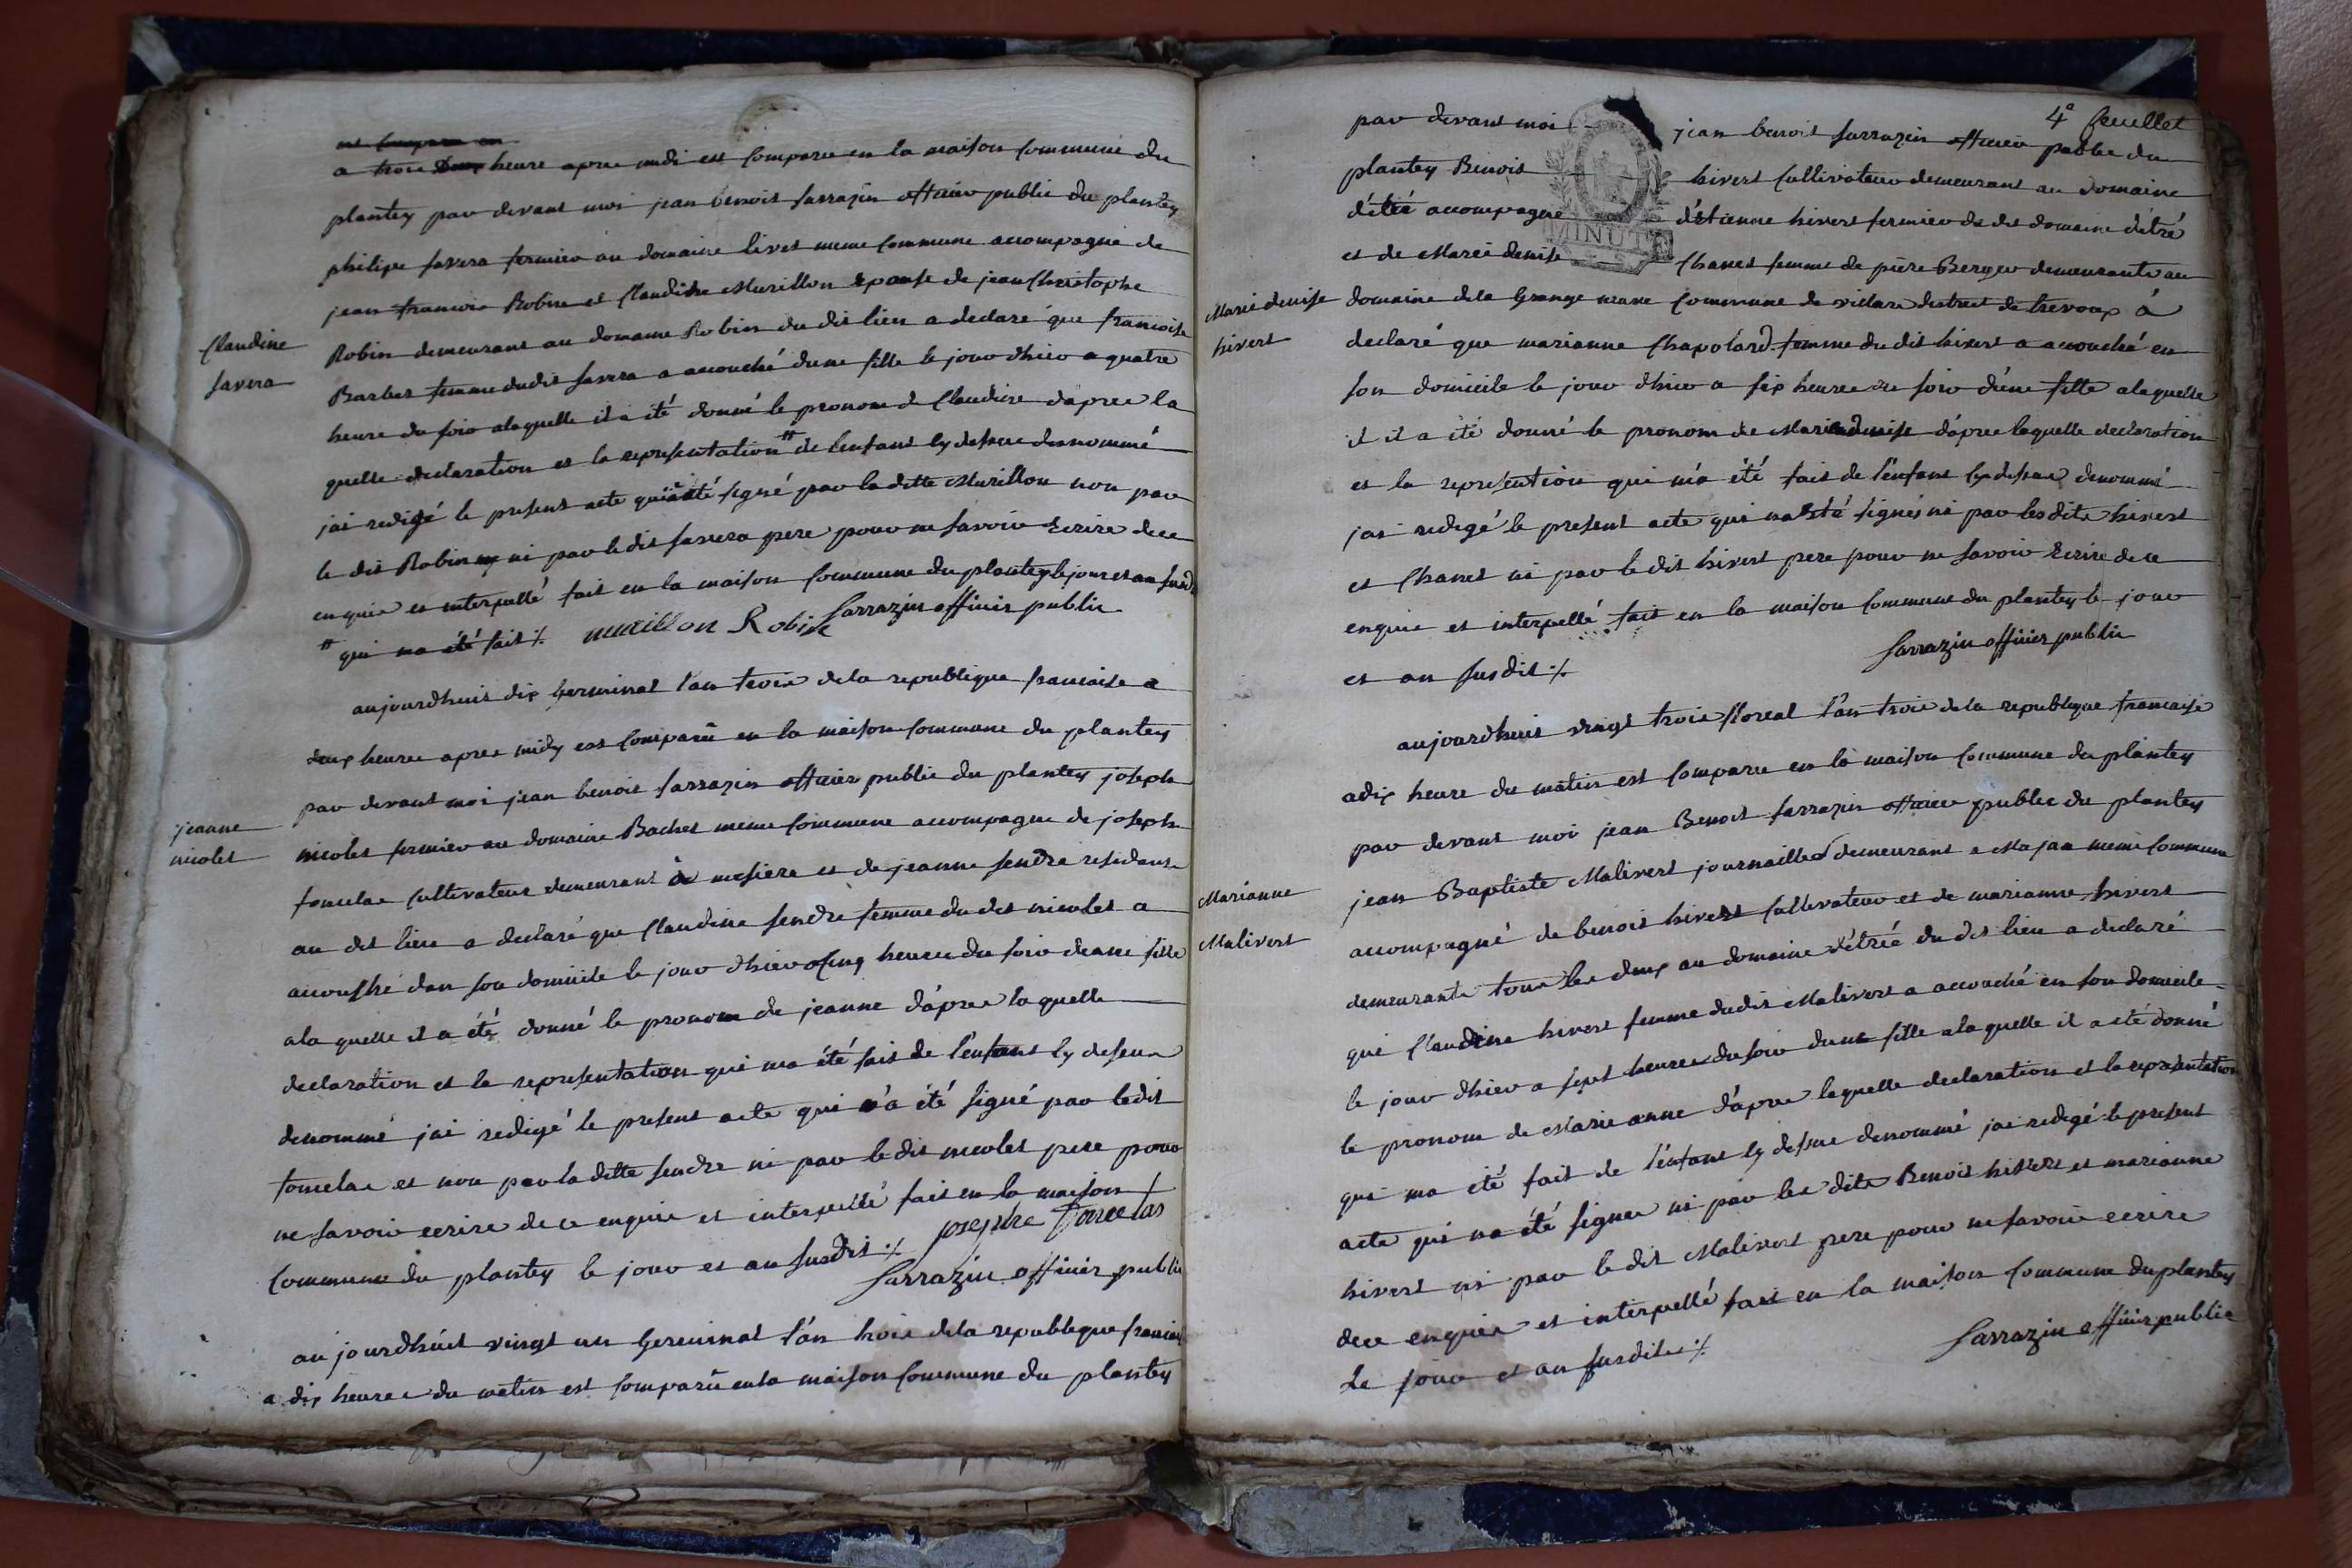 a trois heure apres midi est comparu en la maison commune du
plantey par devant moi jean benois sarrazin officier public du plantey
philipe favera fermier au domaine livet meme commune accompagné de
jean francois Robin et Claudine Murillon epouse de jean Christophe
Robin demeurans au domaine Robin du dit lieu a declaré que francoise
Barbet femme dudit favera a accouché dune fille le jour dhier a quatre
heure du soir alaquelle il a été donné le pronom de Claudine dapres la
quelle declaration et la representation # de lenfant cy dessus denommé
jai redigé le present acte qui a été signé par la ditte Murillon non par
le dit Robin ni par le dit favera pere pour ne savoir Ecrire de ce
enquis et interpellé fait en la maison commune du plantey le jour et an susd
# qui ma été fait ./. murillon Robin Sarrazin officier public
Claudine
favera
aujourdhuis dix germinal l'an trois de la republique francaise a
deux heures apres midy est comparû en la maison commune du plantey
par devant moi jean benois sarrazin officier public du plantey joseph
nicolet fermier au domaine Bachet meme commune accompagne de joseph
tomelas cultivateur demeurant a mesiere et de jeanne fendre residante
au dit lieu a declaré que Claudine fendre femme du dit nicolet a
accouché dan son domicile le jour dhier a cinq heures du soir dune fille
a la quelle il a été donné le pronom de jeanne d'apres la quelle
declaration et la representation qui ma été fait de l'enfant cy dessus
denommé jai redigé le present acte qui a été signé par le dit
tomelas et non par la ditte fendre ni par le dit nicolet pere pour
ne savoir ecrire de ce enquis et interpellé fait en la maison
commune du plantey le jour et an susdit ./. josephe Tomelas
Sarrazin officier public
jeanne
nicolet
aujourdhuit vingt un germinal l'an trois de la republique francais
a dix heures du matin est comparû en la maison commune du plantey
4e feuillet
par devant moi jean benois sarrazin officier public du
plantey Benois hivert cultivateur demeurant au domaine
d'étré accompagné d'étienne hivert fermier du dit domaine d'étré
et de Marie denise Chanet femme de piere Berger demeurante au
domaine de la Grange mane commune de villars district de trevoux à
declaré que marianne Chapolard femme du dit hivert a accouché en
son domicile le jour dhier a six heures du soir d'une fille a laquelle
il il a été donné le pronom de Marie denise d'apres laquelle declaration
et la represention qui m'a été fait de l'enfant cy dessus denommé
jai redigé le present acte qui na été signés ni par les dits hivert
et Chanet ni par le dit hivert pere pour ne savoir Ecrire de ce
enquis et interpellé fait en la maison commune du plantey le jour
et an susdit ./. Sarrazin officier public
MINUTE
Marie denise
hivert
aujourdhuis vingt trois floreal l'an trois de la republique francaise
a dix heure du matin est comparu en la maison commune du plantey
par devant moi jean Benois sarrazin officier public du plantey
jean Baptiste Malivert journaillé demeurant a Majan meme commune
accompagné de benois hivert cultivateur et de marianne hivert
demeurants tous les deux au domaine d'étrée du dit lieu a declaré
que Claudine hivert femme dudit Malivert a accouché en son domicile
le jour dhier a sept heures du soir dune fille a la quelle il a été donné
le pronom de Marie anne d'apres laquelle declaration et la representation
qui ma été fait de l'enfant cy dessus denommé jai redigé le present
acte qui na été signer ni par les dits Benois hivert et marianne
hivert ni par le dit Malivert pere pour ne savoir ecrire
de ce enquis et interpellé fait en la maison commune du plantey
Le jour et an susdits ./. Sarrazin officier public
Marianne
Malivert